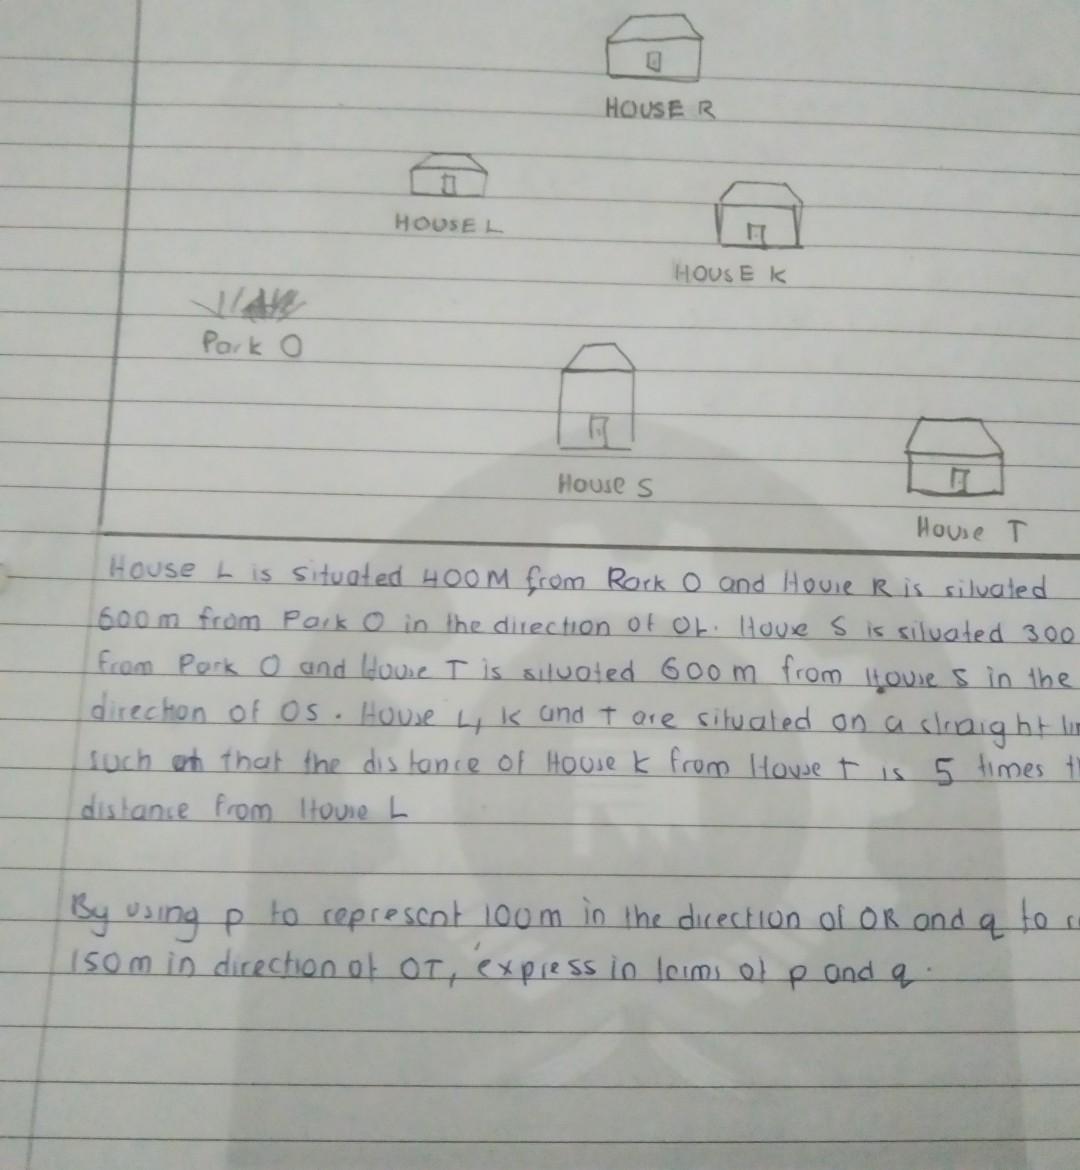 HOUSE R
HOUSE L
HOUSE K
Park O
House S
House T
House L is situated 400M from Park O and House R is situated
600m from Park O in the direction of OL. House S is situated 300
from Park O and House T is situated 600m from House S in the
direction of OS. House L, K and T are situated on a straight
such that the distance of House K from House T is 5 times
distance from House L
By using p to represent 100m in the direction of OR and q to
150m in direction of OT, express in terms of p and q.